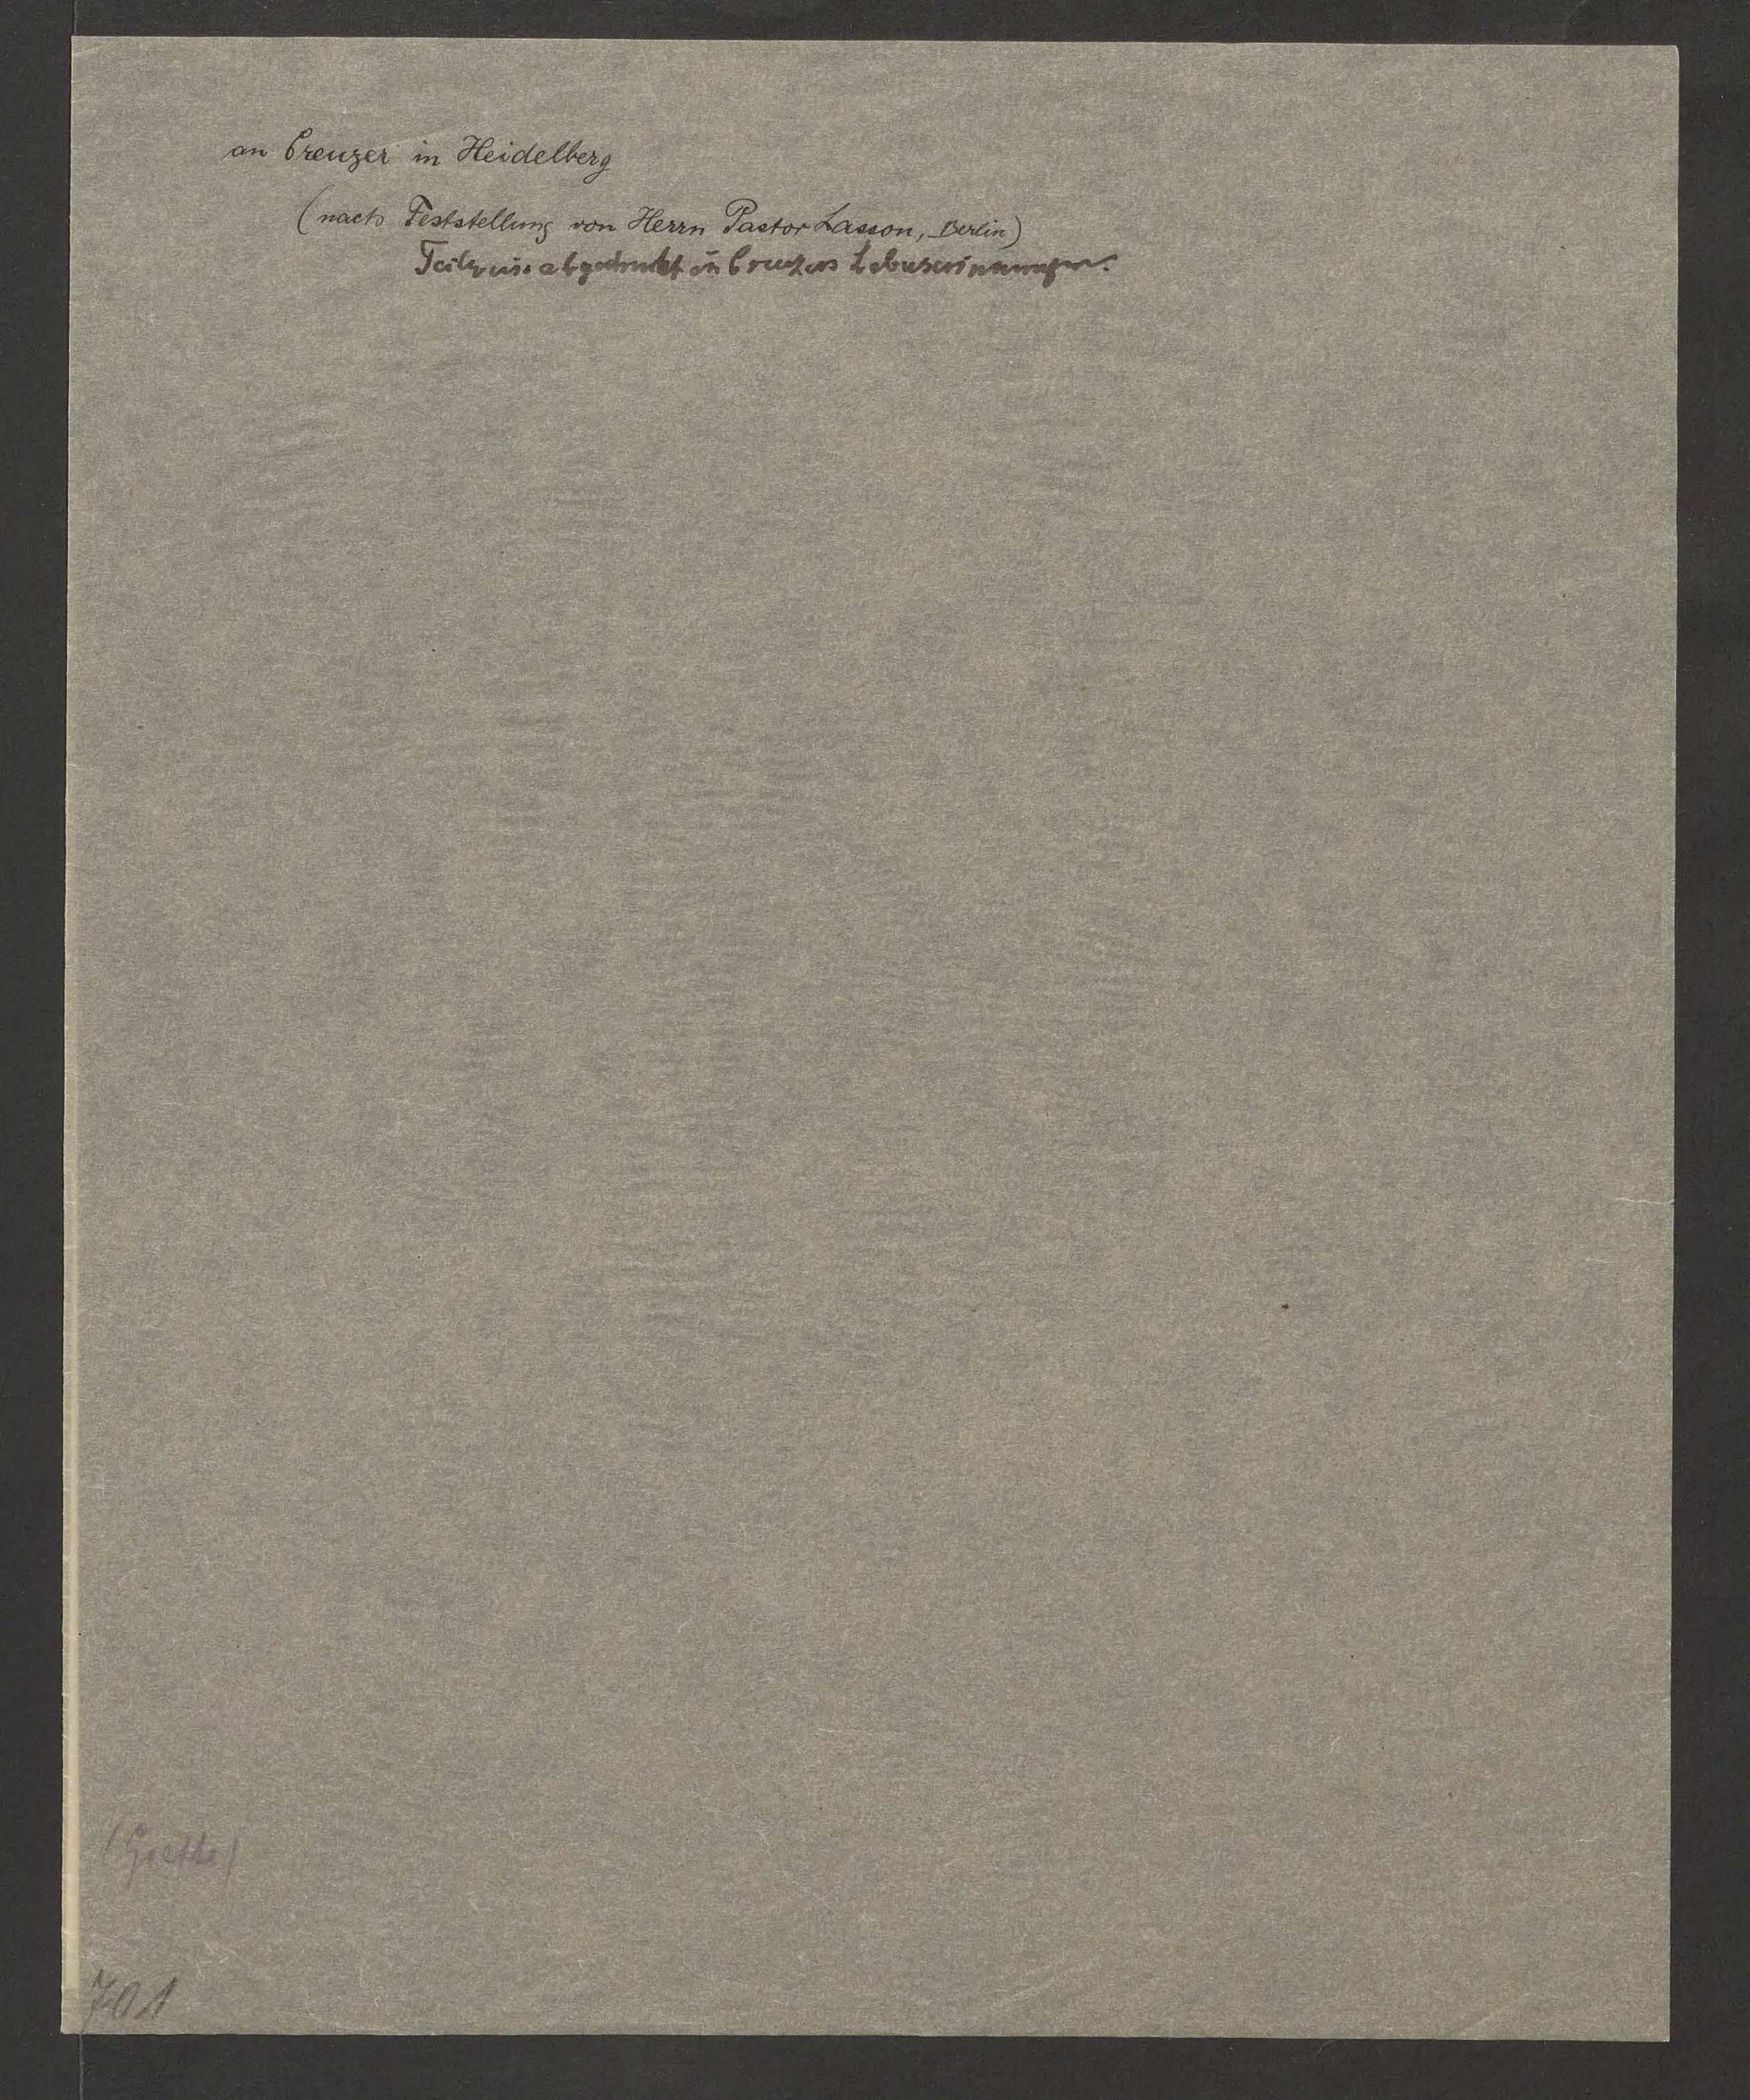 an Creuzer in Heidelberg
(nach Feststellung von Herrn Pastor Lasson, Berlin)
Teilweise abgedruckt in Creuzers Lebenserinnerungen.
(Goethe)
701